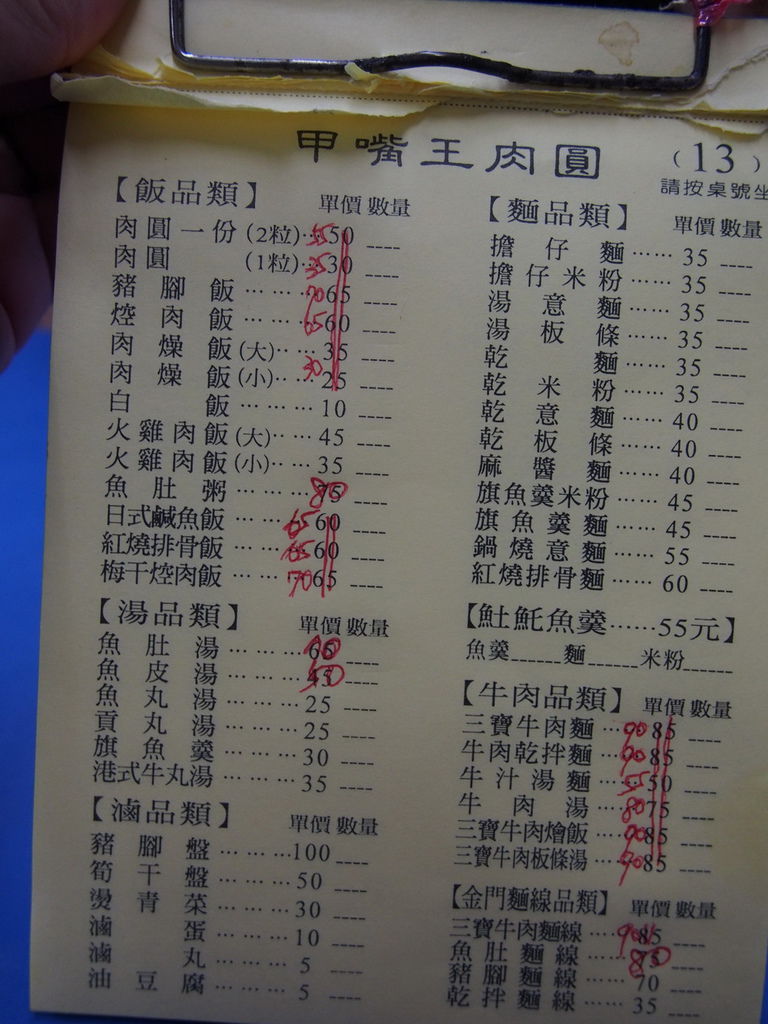 甲嘴王肉圓
(13)
請按桌號坐
【飯品類】 單價 數量
肉圓一份(2粒)‥55 50 ----
肉圓 (1粒)‥35 30 ----
豬腳飯………70 65 ----
焢肉飯………65 60 ----
肉燥飯(大)‥…35 ----
肉燥飯(小)‥…30 25 ----
白飯………10 ----
火雞肉飯(大)‥…45 ----
火雞肉飯(小)‥…35 ----
魚肚粥………80 75 ----
日式鹹魚飯…65 60 ----
紅燒排骨飯…65 60 ----
梅干焢肉飯…70 65 ----
【湯品類】 單價 數量
魚肚湯………70 65 ----
魚皮湯………50 45 ----
魚丸湯………25 ----
貢丸湯………25 ----
旗魚羹………30 ----
港式牛丸湯………35 ----
【滷品類】 單價 數量
豬腳盤………100 ----
筍干盤………50 ----
燙青菜………30 ----
滷蛋………10 ----
滷丸………5 ----
油豆腐………5 ----
【麵品類】 單價 數量
擔仔麵……35 ----
擔仔米粉……35 ----
湯意麵……35 ----
湯板條……35 ----
乾麵……35 ----
乾米粉……35 ----
乾意麵……40 ----
乾板條……40 ----
麻醬麵……40 ----
旗魚羹米粉……45 ----
旗魚羹麵……45 ----
鍋燒意麵……55 ----
紅燒排骨麵……60 ----
【魠魚羹……55元】
魚羹______麵______米粉______
【牛肉品類】 單價 數量
三寶牛肉麵…90 85 ----
牛肉乾拌麵…90 85 ----
牛汁湯麵…55 50 ----
牛肉湯…80 75 ----
三寶牛肉燴飯…90 85 ----
三寶牛肉板條湯…90 85 ----
【金門麵線品類】 單價 數量
三寶牛肉麵線…90 85 ----
魚肚麵線……80 75 ----
豬腳麵線……70 ----
乾拌麵線……35 ----